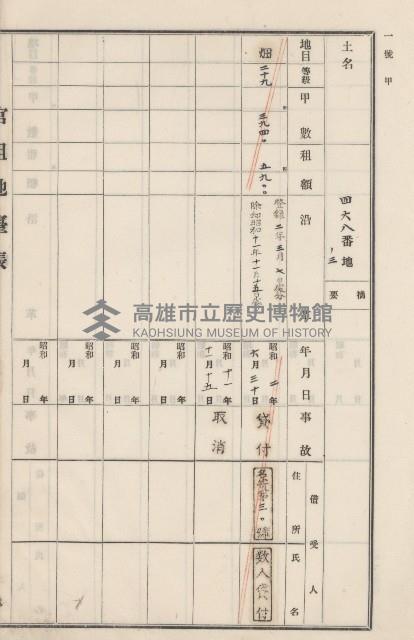 一號甲
土名
四六八番地
ノ三
摘要
地目
等級
甲數
租額
沿革
年月日
事故
借受人
住所
氏名
畑
二十九
三九四〇
五九〇〇
登錄 二年三月七日處分
除却昭和十一年十一月十五日
昭和 二年
六月三十日
貸付
名寄第三〇號
數人貸付
昭和 十一年
十一月十五日
取消
昭和 年
月 日
昭和 年
月 日
昭和 年
月 日
昭和 年
月 日
官租地臺帳
高雄市立歷史博物館
KAOHSIUNG MUSEUM OF HISTORY